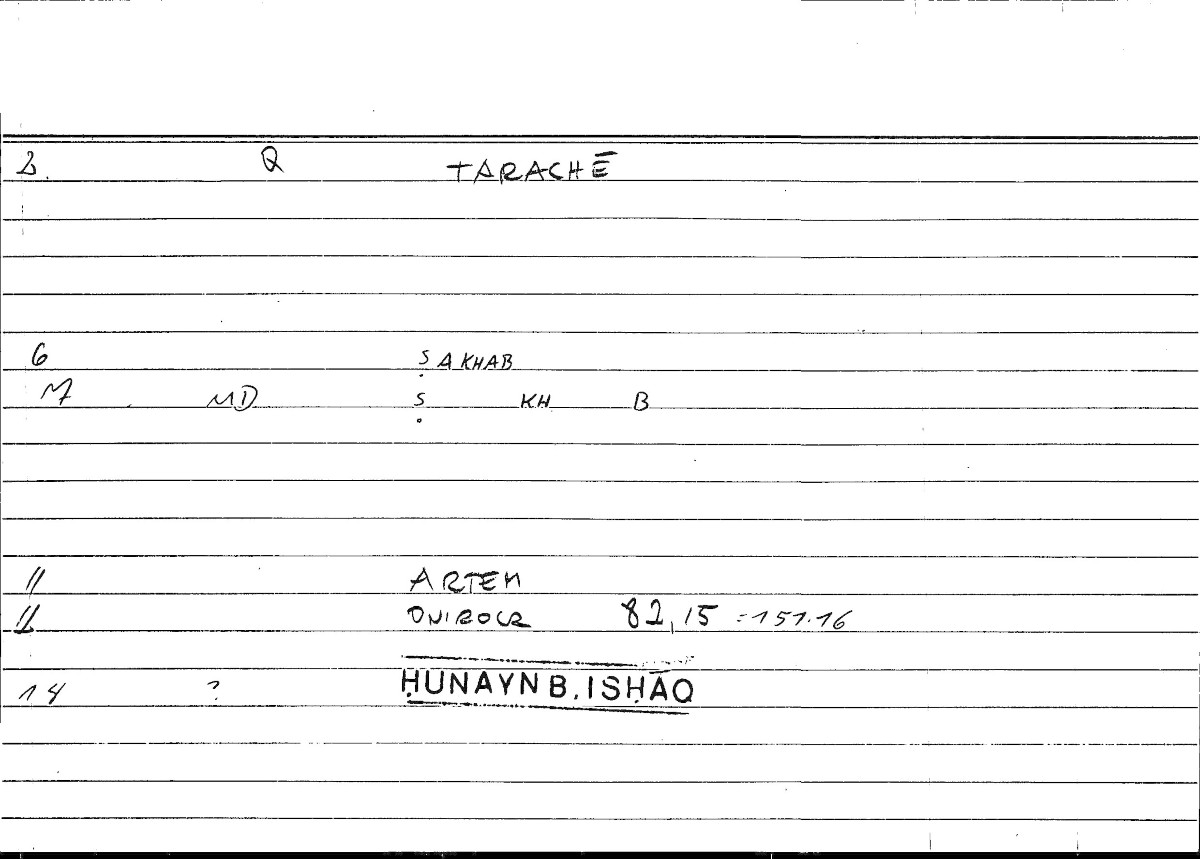 2. Q TARACHĒ
6 ṢAKHAB
7 MD Ṣ KH B
11 ARTEM
12 ONIROCR 82,15 =151.16
14 ? ḤUNAYN B. ISḤĀQ